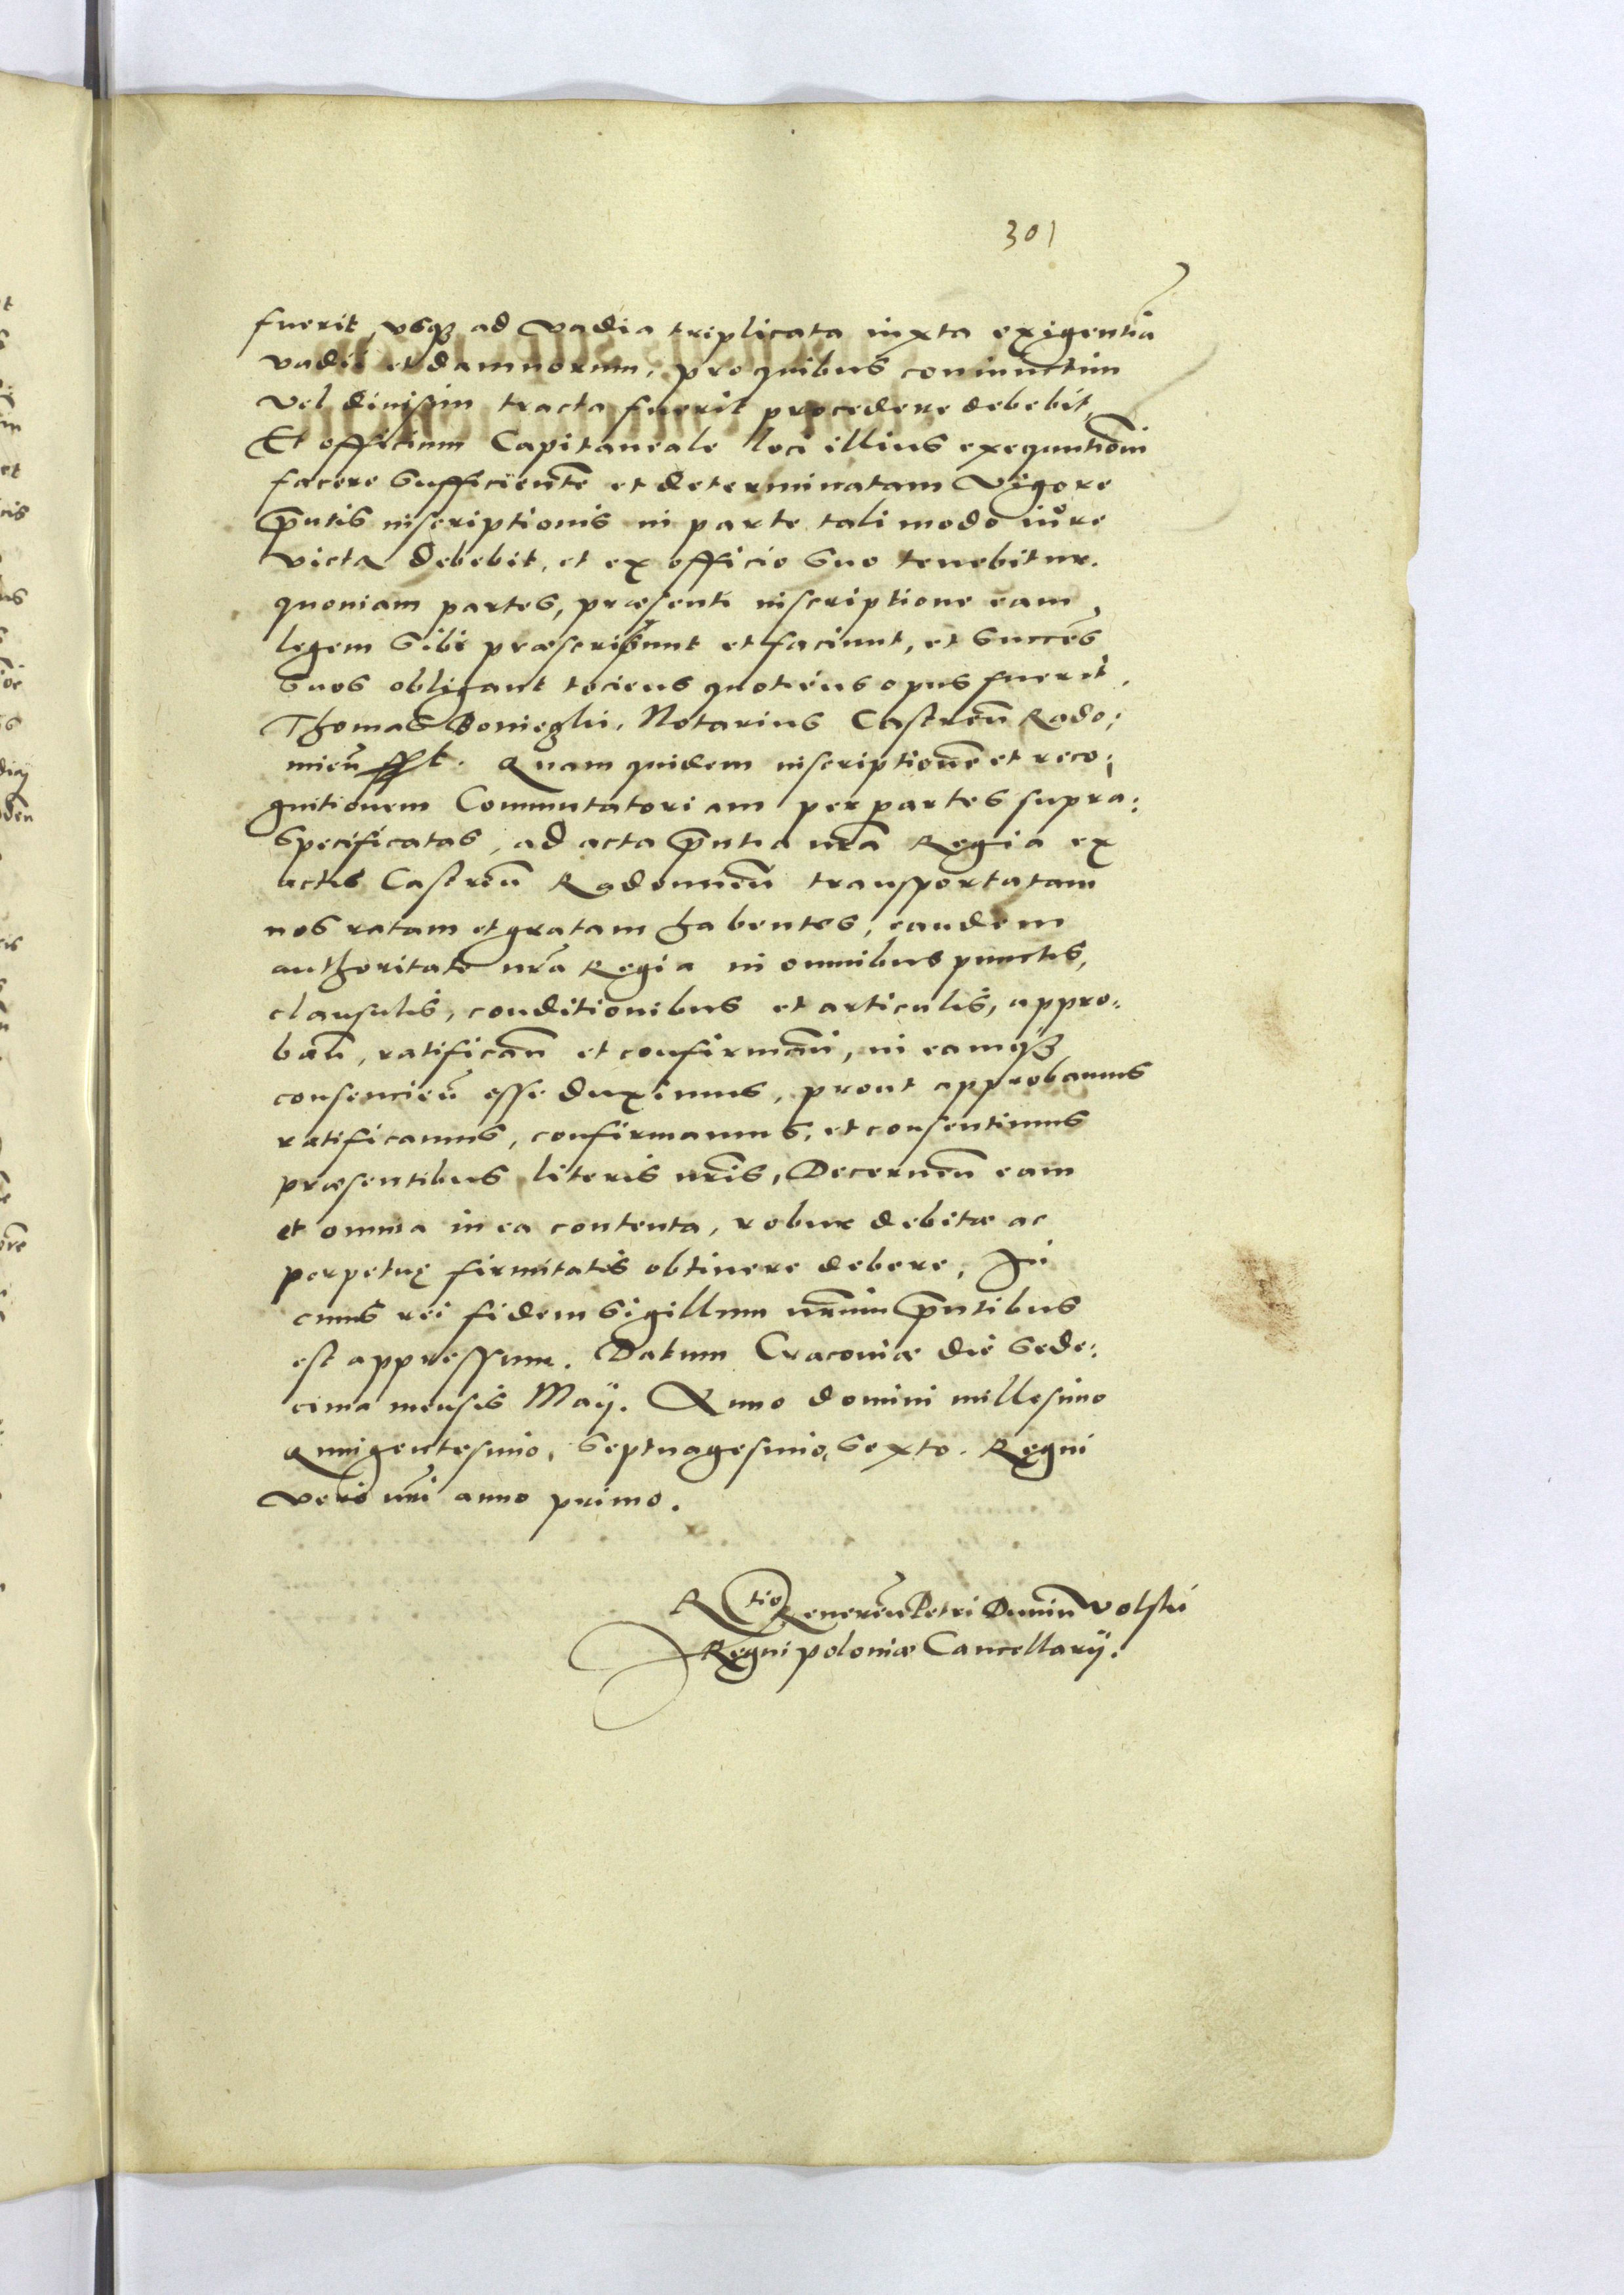 301
fuerit, vsq3 ad vadia triplicata iuxta exigentiã
vadii et damnorum, pro quibus coniunctim
vel diuisim tracta fuerit procedere debebit,
Et officium Capitaneale loci illius exequutiõni
facere sufficientẽ et determinatam vigore
p̃ntis inscriptionis in parte tali modo iure
victa debebit, et ex officio suo tenebitur.
quoniam partes, præsenti inscriptione eam
legem sibi præscribunt et faciunt, et succẽs
suos obligant tociens quotiens opus fuerit.
Thomas Notarius Castreñ Rado:
mieñ Quam quidem inscriptionẽ et reco:
gnitionem Commutatoriam per partes supra:
specificatas, ad acta p̃ntia nr̃a Regia ex
actis Castreñ Radomieñ transportatam
nos ratam et gratam habentes, eandem
authoritate nr̃a Regia in omnibus punctis,
clausulis, conditionibus et articulis, appro:
bañ, ratificañ et confirmañ, in eamq3
consencieñ esse duximus, prout approbamus
ratificamus, confirmamus, et consentimus
præsentibus literis nr̃is, Decerneñ eam
et omnia in ea contenta, robur debitæ ac
perpetuę firmitatis obtinere debere, In
cuius rei fidem sigillum nr̃um p̃ntibus
est appressum. Datum Cracoviæ die sede:
cima mensis Maÿ. Anno domini millesimo
Quingentesimo, Septuagesimo, sexto. Regni
vero nr̃i anno primo.
R tio Reuereñ Petri Duniñ Volski
Regni poloniæ Cancellarÿ.